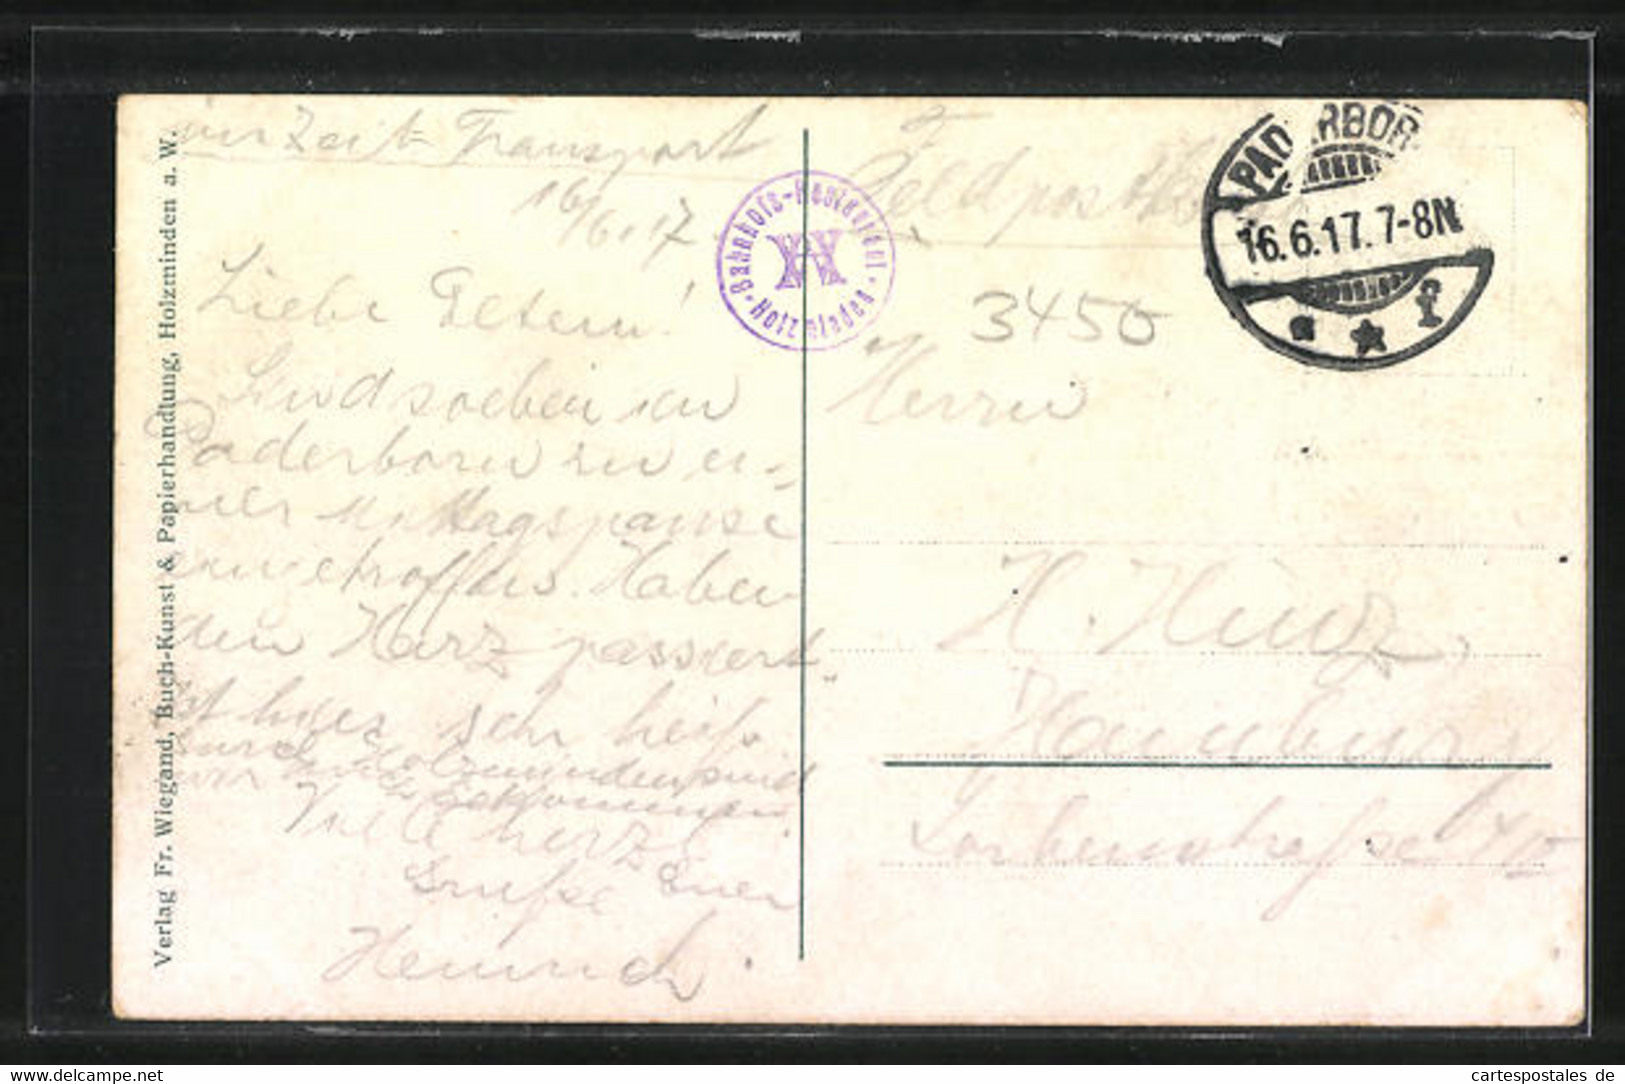 zur Zeit Transport
16/6.17
Liebe Eltern!
Sind soeben in
Paderborn zu ei-
ner Mittagspause
eingetroffen. Haben
den Harz passiert.
Ist hier sehr heiß.
durch Holzminden sind
wir auch gekommen.
Viele herzl.
Grüße Euer
Heinrich.
Verlag Fr. Wiegand, Buch-Kunst & Papierhandlung, Holzminden a. W.
Bahnhofs-
H
Holzminden
Feldpostkarte
PADERBORN
16.6.17.7-8N
* f
3450
Herrn
H. Hinz,
Hamburg